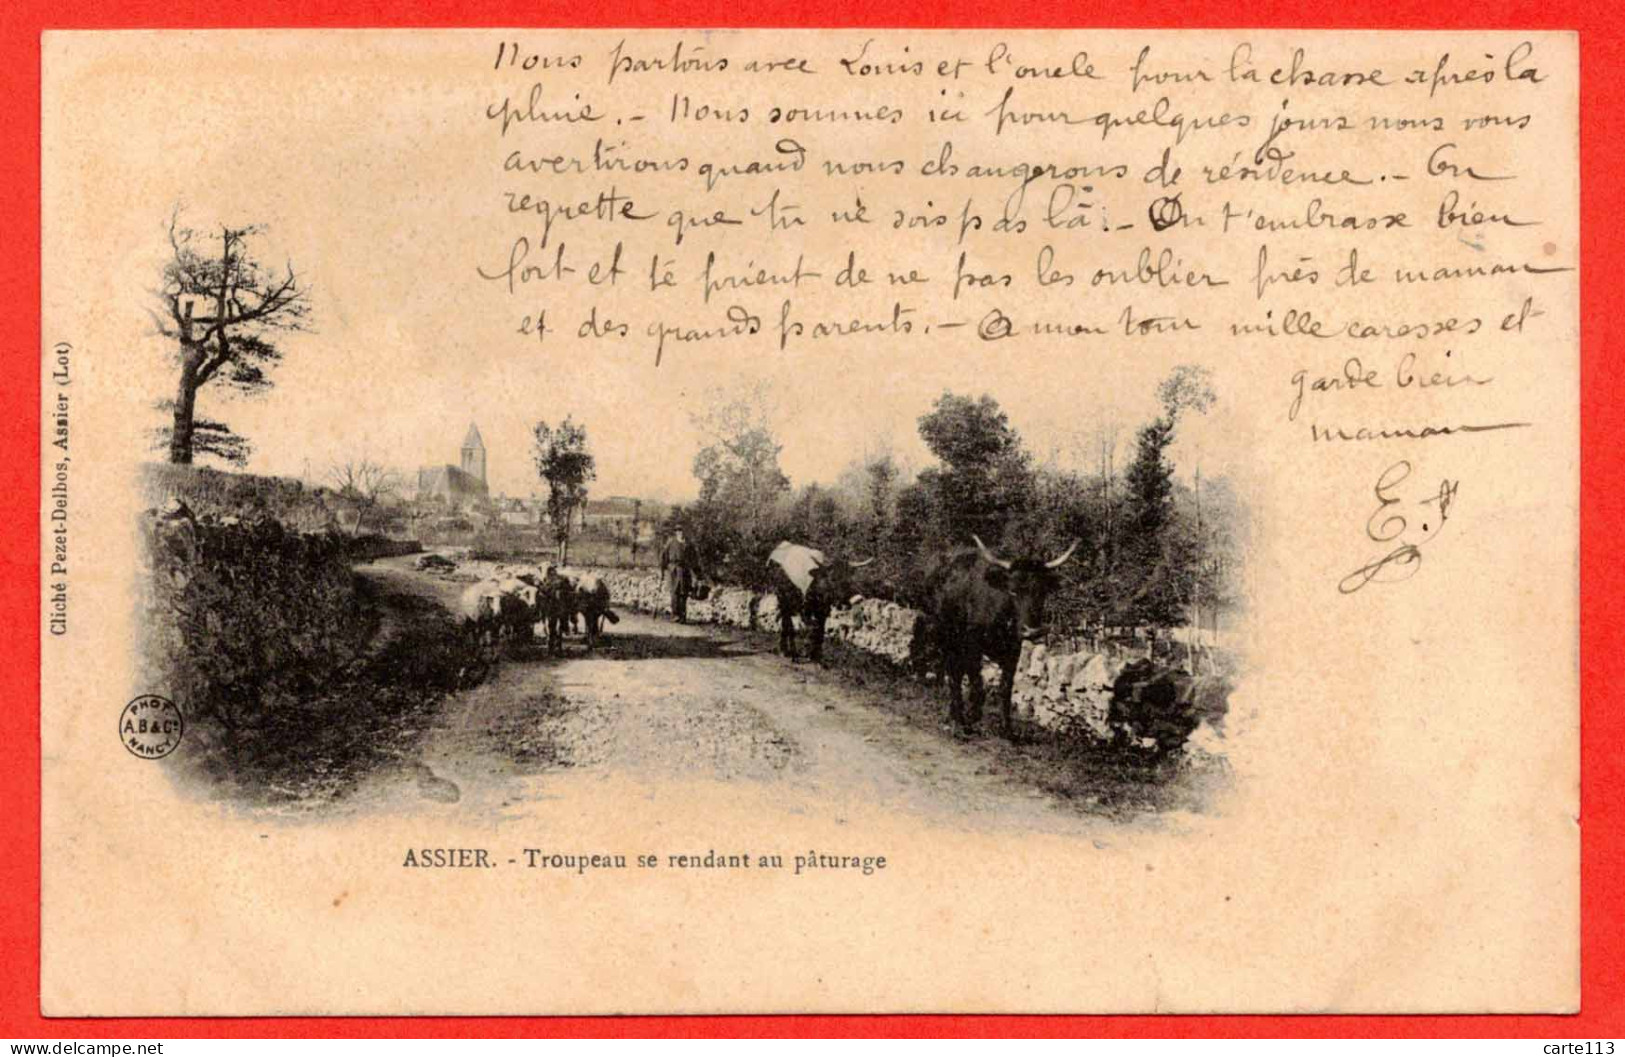 Nous partons avec Louis et l'oncle pour la chasse après la
pluie. - Nous sommes ici pour quelques jours nous vous
avertirons quand nous changerons de résidence. - On
regrette que tu ne sois pas là. - On t'embrasse bien
fort et te prient de ne pas les oublier près de maman
et des grands parents. - A mon tour mille caresses et
garde bien
maman
Cliché Pezet-Delbos, Assier (Lot)
PHOT
A.B & Cie
NANCY
ASSIER. - Troupeau se rendant au pâturage
delcampe.net
carte113